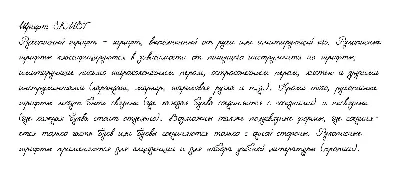 Шрифт ЕК.МСТ
Рукописный шрифт – шрифт, выполненный от руки или имитирующий его. Рукописные
шрифты классифицируются в зависимости от пишущего инструмента на шрифты,
имитирующие письмо ширококонечным пером, остроконечным пером, кистью и другими
инструментами (карандаш, маркер, шариковая ручка и т.д.). Кроме того, рукописные
шрифты могут быть связные (где каждая буква соединяется с соседними) и несвязные
(где каждая буква стоит отдельно). Возможны также полусвязные формы, где соединя-
ется только часть букв или буквы соединяются только с одной стороны. Рукописные
шрифты применяются для акциденции и для набора учебной литературы (прописи).